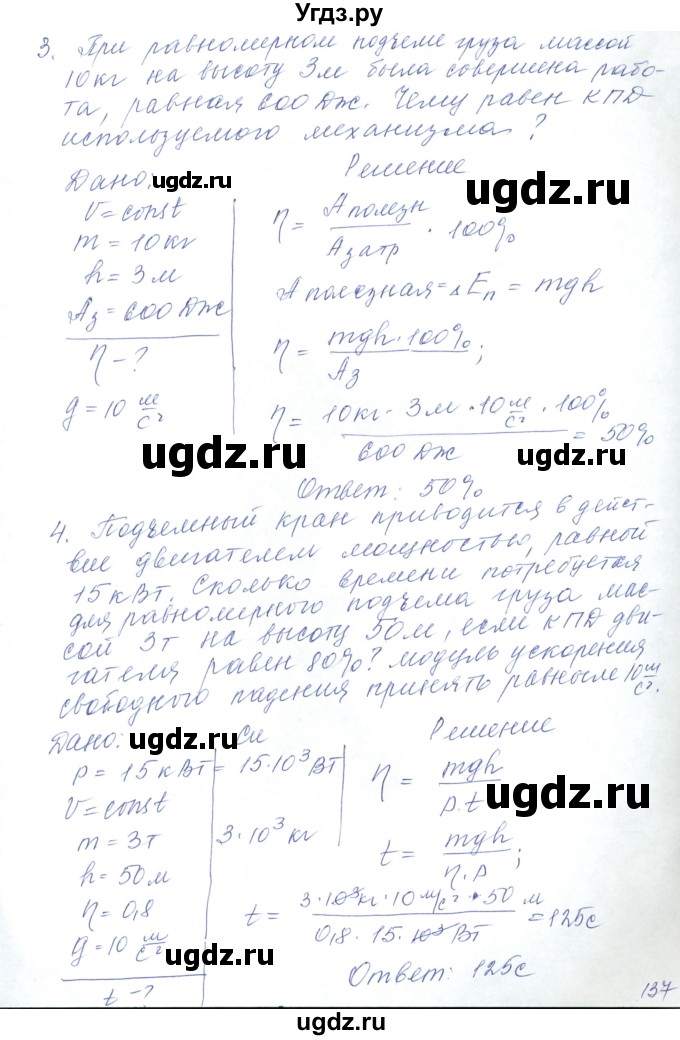 Угдз.ру
3. При равномерном подъеме груза массой
10 кг на высоту 3м была совершена рабо-
та, равная 600 Дж. Чему равен КПД
используемого механизма?
Дано: Решение
ugdz.ru ugdz.ru
V = const
m = 10 кг
h = 3 м
Aз = 600 Дж
η - ?
g = 10 м/с²
η = Aполезн / Aзатр · 100%
Aполезная = ΔEп = mgh
η = mgh · 100% / Aз;
η = 10кг · 3м · 10 м/с² · 100% / 600 Дж = 50%
ugdz.ru ugdz.ru
Ответ: 50%
4. Подъемный кран приводится в дейст-
вие двигателем мощностью, равной
15 кВт. Сколько времени потребуется
для равномерного подъема груза мас-
сой 3т на высоту 50м, если КПД дви-
гателя равен 80%? Модуль ускорения
свободного падения принять равным 10 м/с².
Дано: ugdz.ru Си Решение
P = 15 кВт = 15·10³ Вт
V = const
m = 3т 3·10³ кг
h = 50м
η = 0,8
g = 10 м/с²
t - ?
η = mgh / P·t
ugdz.ru
t = mgh / η·P;
t = 3·10³кг·10 м/с²·50 м / 0,8·15·10³ Вт = 125с
Ответ: 125с
ugdz.ru ugdz.ru
137
ugdz.ru